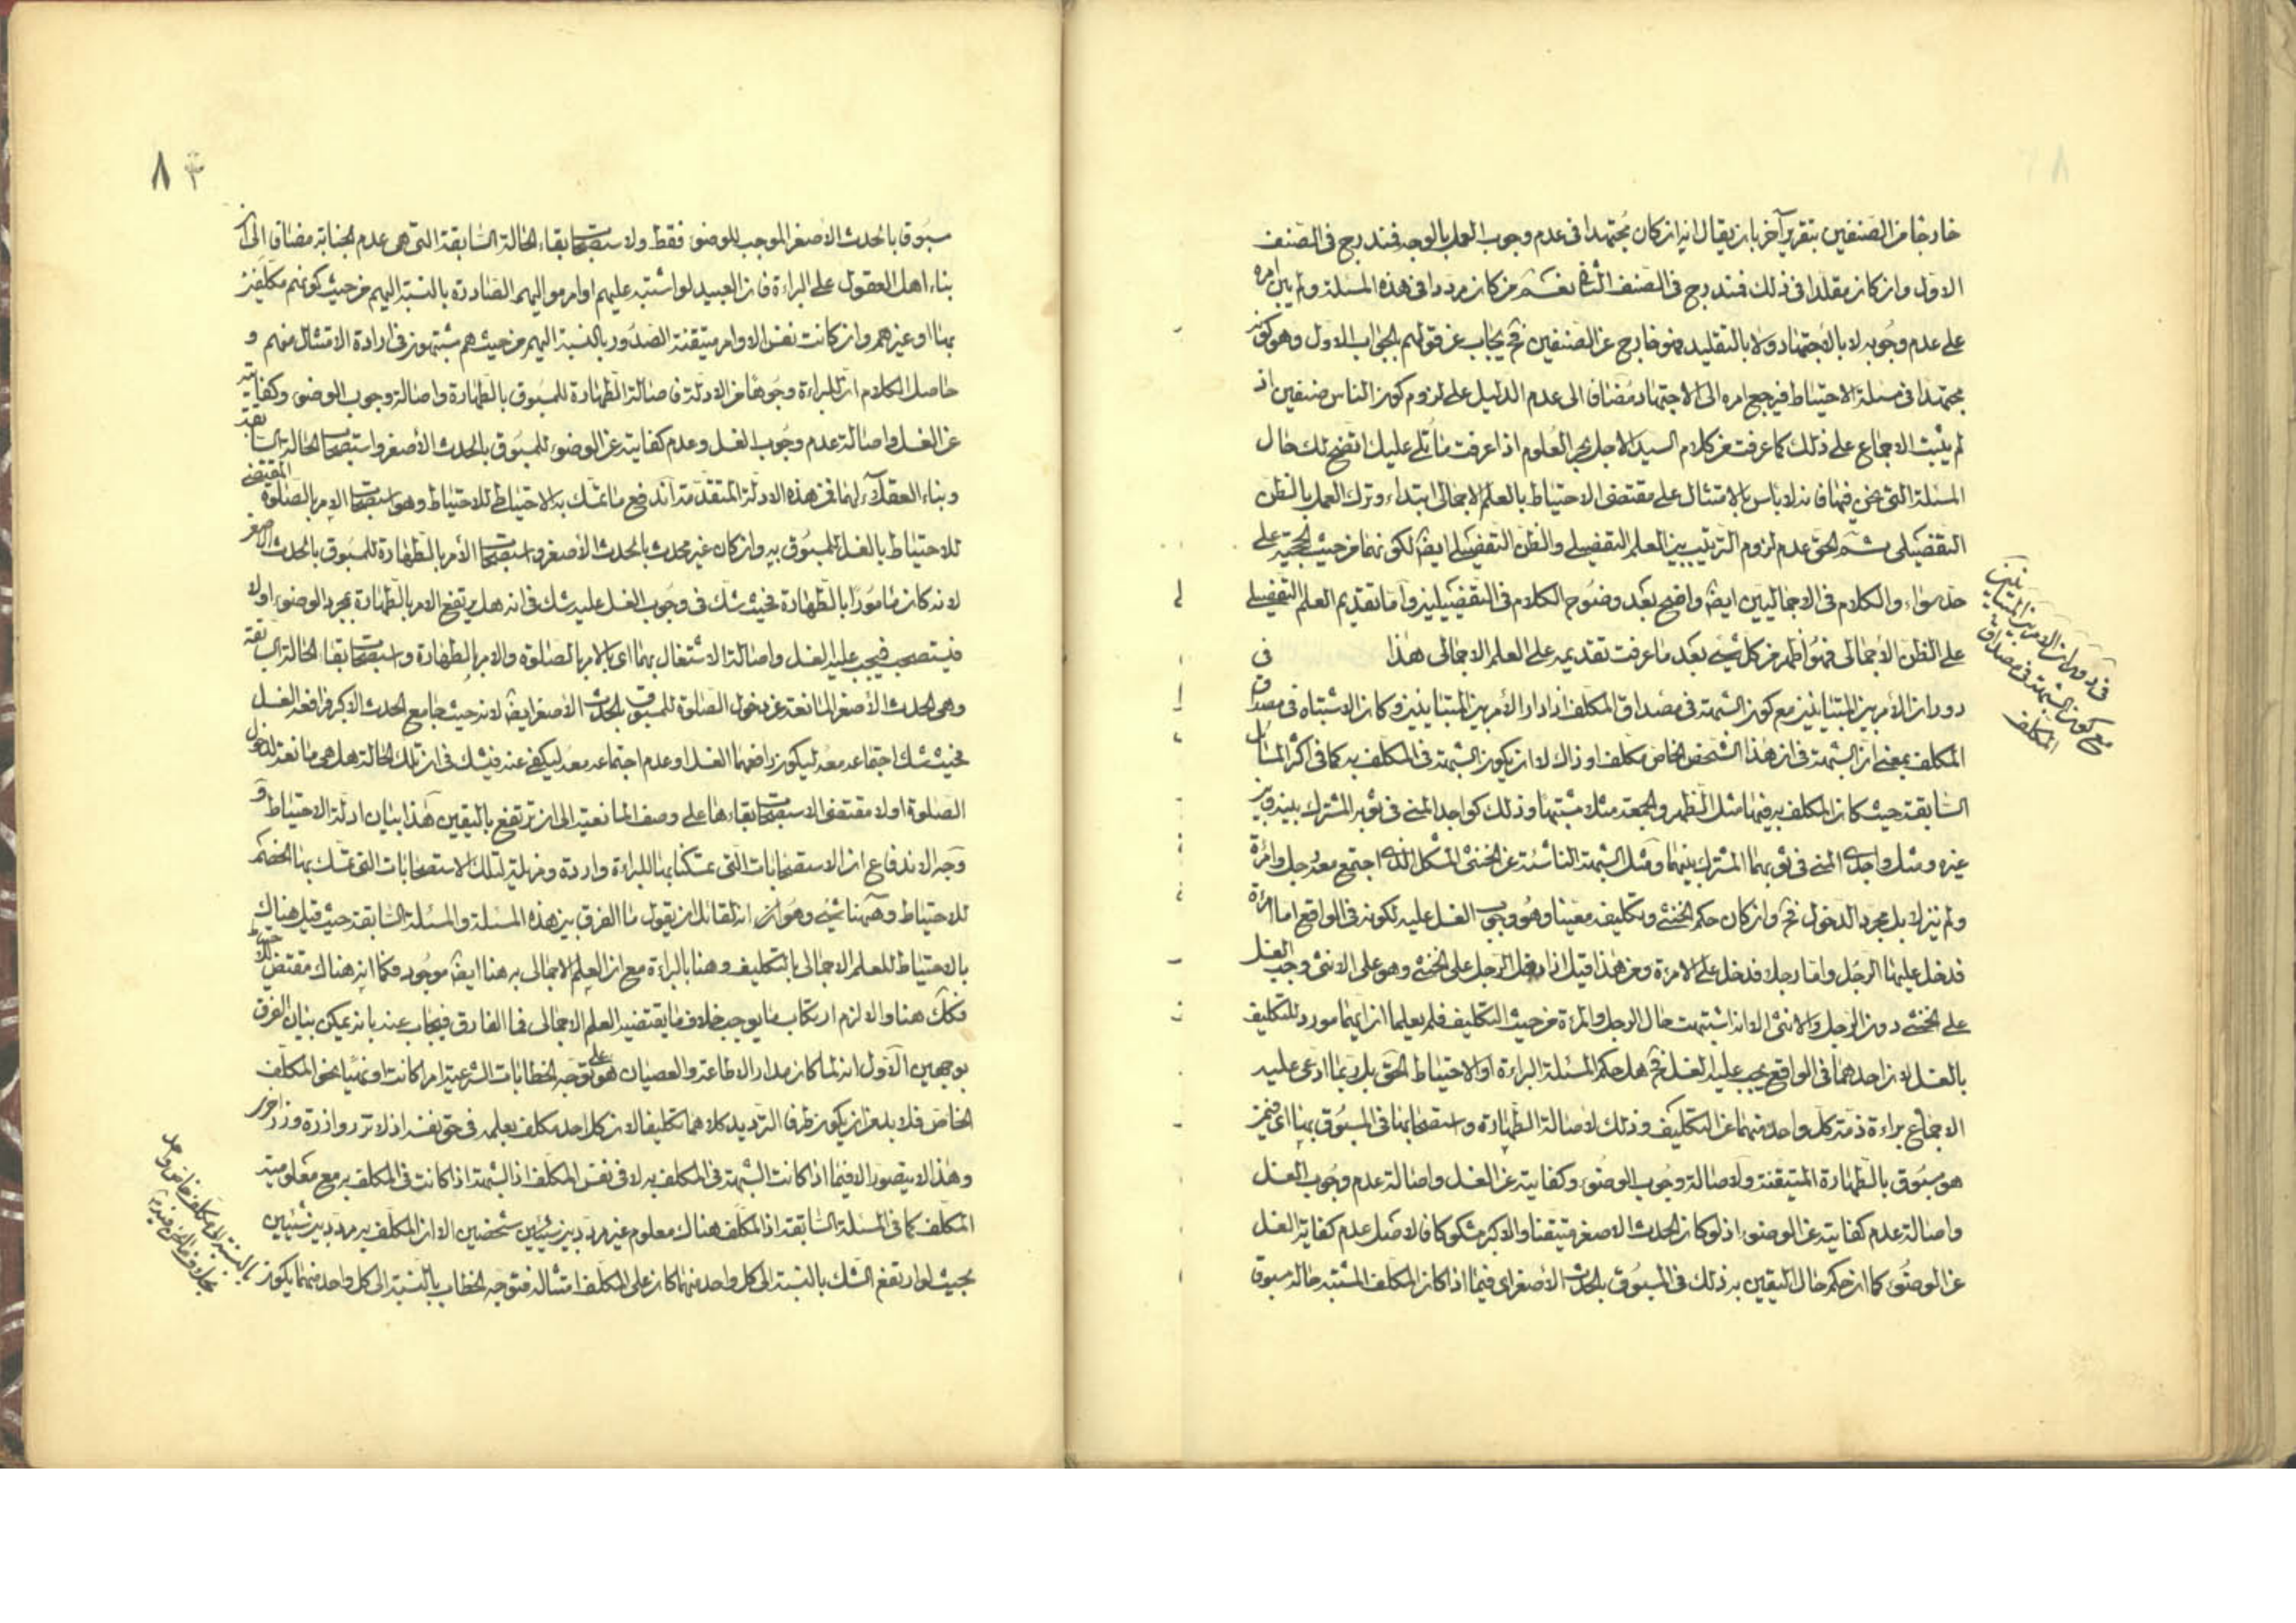 خارجا من الصنفين بتقرير آخر بان يقال انه ان كان مجتهدا فى عدم وجوب العمل بالوجه فيندرج فى الصنف
الاول وان كان مقلدا فى ذلك فيندرج فى الصنف الثانى نعم من كان مرددا فى هذه المسئلة ولم يبن امره
على عدم وجوبه لا بالاجتهاد ولا بالتقليد فهو خارج عن الصنفين فح يجاب عن قولهم الجواب الاول وهو كونه
مجتهدا فى مسئلة الاحتياط فيرجع امره الى الاجتهاد مضاف الى عدم الدليل على لزوم كون الناس صنفين اذ
لم يثبت الاجماع على ذلك كما عرفت من كلام السيد الاجل بحر العلوم اذا عرفت ما تلى عليك اتضح لك حال
المسئلة التى نحن فيها فانه لا باس بالامتثال على مقتضى الاحتياط بالعلم الاجمالى ابتداء وترك العمل بالظن
التفصيلى ثم الحق عدم لزوم الترتيب بين العلم التفصيلى والظن التفصيلى ايضا لكونهما من حيث الحجية على
حد سواء والكلام فى الاجماليين ايضا واضح بعد وضوح الكلام فى التفصيليين واما تقديم العلم التفصيلى
على الظن الاجمالى فهو اظهر من كل شئ بعد ما عرفت تقديمه على العلم الاجمالى هذا فى
دوران الامر بين المتباينين مع كون الشبهة فى مصداق المكلف اذا دار الامر بين المتباينين وكان الاشتباه فى مصداق
المكلف بمعنى ان الشبهة فى ان هذا الشخص الخاص مكلف او ذاك لا ان يكون الشبهة فى المكلف به كما فى اكثر المسائل
السابقة حيث كان المكلف به فيها مثل الظهر والجمعة مثلا مشتبها وذلك كواجد المنى فى ثوبه المشترك بينه وبين
غيره ومثل واجدى المنى فى ثوبهما المشترك بينهما ومثل الشبهة الناشئة عن الخنثى المشكل الذى اجتمع معه رجل وامرئة
ولم ينزلا بل بمجرد الدخول فح وان كان حكم الخنثى وتكليفه معينا وهو وجوب الغسل عليه لكونه فى الواقع اما امرئة
فدخل عليها الرجل واما رجل فدخل على الامرئة ومن هذا قيل اذا دخل الرجل على الخنثى وهو على الانثى وجب الغسل
على الخنثى دون الرجل والانثى الا انه اشتبهت حال الرجل والمرئة من حيث التكليف فلم يعلما ان ايهما مورد للتكليف
بالغسل لان احدهما فى الواقع يجب عليه الغسل فح هل حكم المسئلة البراءة او الاحتياط الحق بل ربما ادعى عليه
الاجماع براءة ذمة كل واحد منهما عن التكليف وذلك لاصالة الطهارة واستصحابها فى المسبوق بها اى فيمن
هو مسبوق بالطهارة المتيقنة ولاصالة وجوب الوضوء وكفايته عن الغسل واصالة عدم وجوب الغسل
واصالة عدم كفايته عن الوضوء اذ لو كان الحدث الاصغر متيقنا والاكبر مشكوكا فالاصل عدم كفاية الغسل
عن الوضوء كما ان حكم حال اليقين به ذلك فى المسبوق بالحدث الاصغر اى فيما اذا كان المكلف المشتبه حاله مسبوق
فى دوران الامر بين المتباينين
مع كون الشبهة فى مصداق
المكلف
٨
سبوق بالحدث الاصغر الموجب للوضوء فقط ولاستصحاب بقاء الحالة السابقة التى هى عدم الجنابة مضاف الى ان
بناء اهل العقول على البراءة فان العبيد لو اشتبه عليهم اوامر مواليهم الصادرة بالنسبة اليهم من حيث كونهم مكلفين
بها او غيرهم وان كانت نفس الاوامر متيقنة الصدور بالنسبة اليهم من حيث هم مشتبهون فى ارادة الامتثال منهم و
حاصل الكلام ان للبراءة وجوها من الادلة فاصالة الطهارة للمسبوق بالطهارة واصالة وجوب الوضوء وكفايته
عن الغسل واصالة عدم وجوب الغسل وعدم كفايته عن الوضوء للمسبوق بالحدث الاصغر واستصحاب الحالة السابقة
وبناء العقلاء لها فمن هذه الادلة المتقدمة اندفع ما تمسك به الاحتياطى للاحتياط وهو استصحاب الامر بالصلوة المقتضى
للاحتياط بالغسل للمسبوق به وان كان غير محدث بالحدث الاصغر واستصحاب الامر بالطهارة للمسبوق بالحدث الاصغر
لانه كان مامورا بالطهارة فحيث شك فى وجوب الغسل عليه شك فى انه هل يرتفع الامر بالطهارة بمجرد الوضوء اولا
فيستصحب فيجب عليه الغسل واصالة الاشتغال بهما اى بالامر بالصلوة والامر بالطهارة واستصحاب بقاء الحالة السابقة
وهى الحدث الاصغر المانعة عن دخول الصلوة للمسبوق بالحدث الاصغر ايضا لانه حيث جامع الحدث الاكبر فرافعه الغسل
فحيث شك اجتماعه معه ليكون رافعهما الغسل او عدم اجتماعه معه ليكفى عنه فيشك فى ان تلك الحالة هل هى مانعة لدخول
الصلوة اولا مقتضى الاستصحاب بقاءها على وصف المانعية الى ان ترتفع باليقين هذا بيان ادلة الاحتياط و
وجه الاندفاع ان الاستصحابات التى تمسكنا بها للبراءة واردة ومزيلة لتلك الاستصحابات التى تمسك بها الخصم
للاحتياط وههنا شئ وهو ان لقائل ان يقول ما الفرق بين هذه المسئلة والمسئلة السابقة حيث قيل هناك
بالاحتياط للعلم الاجمالى بالتكليف وهنا بالبراءة مع ان العلم الاجمالى به هنا ايضا موجود فكما انه هناك مقتض للاحتياط
فكك هنا والا لزم ارتكاب ما يوجب خلاف ما يقتضيه العلم الاجمالى فما الفارق فيجاب عنه بانه يمكن بيان الفرق
بوجهين الاول انه لما كان مدار الاطاعة والعصيان هو على توجه الخطابات الشرعية امرا كانت او نهيا نحو المكلف
الخاص فلا بد من ان يكون طرفا الترديد كلاهما تكليفا لان كل احد مكلف بعلمه فى حق نفسه اذ لا تزر وازرة وزر اخرى
وهذا لا يتصور الا فيما اذا كانت الشبهة فى المكلف به لا فى نفس المكلف اذ الشبهة اذا كانت فى المكلف به مع معلومية
المكلف كما فى المسئلة السابقة اذ المكلف هناك معلوم غير مردد بين شخصين الا ان المكلف به مردد بين شيئين
بحيث لو ارتفع الشك بالنسبة الى كل واحد منهما كان على المكلف امتثاله فتوجه الخطاب بالنسبة الى كل واحد منهما يكون
بالنسبة الى مكلف خاص واحد